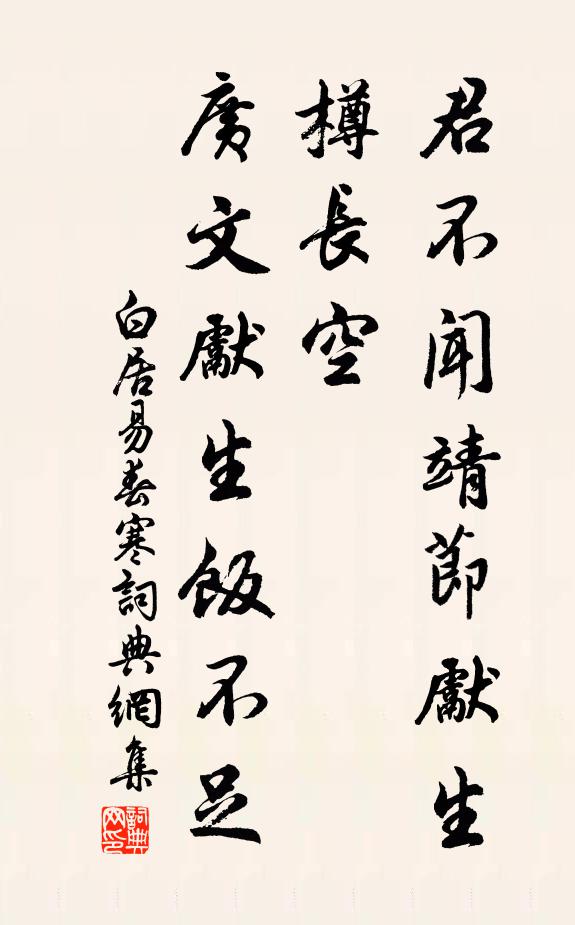 君不聞靖節獻生
樽長空
廣文獻生飯不足
白居易春寒詞典網集
詞典網印